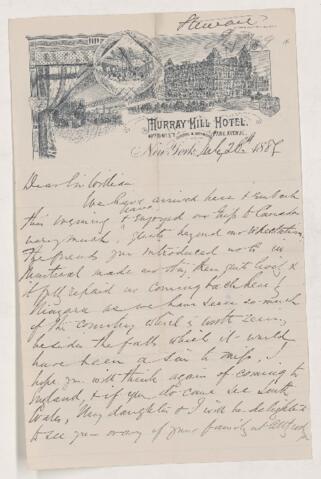 Stewart
MURRAY HILL HOTEL.
PARK AVENUE.
New York July 20th 1887
Dear Sir William
We have arrived here & Embark
this evening & have Enjoyed our trip to Canada
very much, quite beyond our Expectations.
The friends you introduced us to in
Montreal made our stay there quite lively &
it full repaid us coming back here by
Niagara as we have seen so much
of the country which is worth seeing
besides the falls which it would
have been a sin to miss. I
hope you will think again of coming to
England, & if you do come see South
Wales, My daughter & I will be delighted
to see you or any of your family at